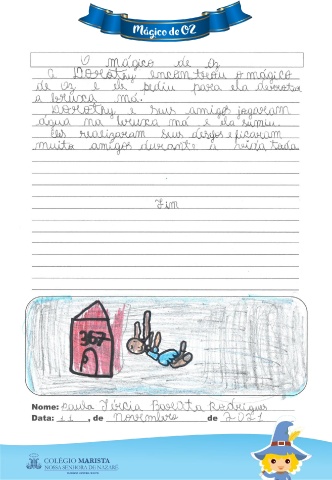 Mágico de OZ
O mágico de Oz
A Dorothy encontrou o mágico
de Oz e ele pediu para ela derrotar
a bruxa má.
Dorothy e seus amigos jogaram
água na bruxa má e ela sumiu.
Eles realizaram seus desejos e ficaram
muito amigos durante a vida toda
Fim
367
Nome: Paula Tércia Barata Rodrigues
Data: 11, de Novembro de 2021
COLÉGIO MARISTA
NOSSA SENHORA DE NAZARÉ